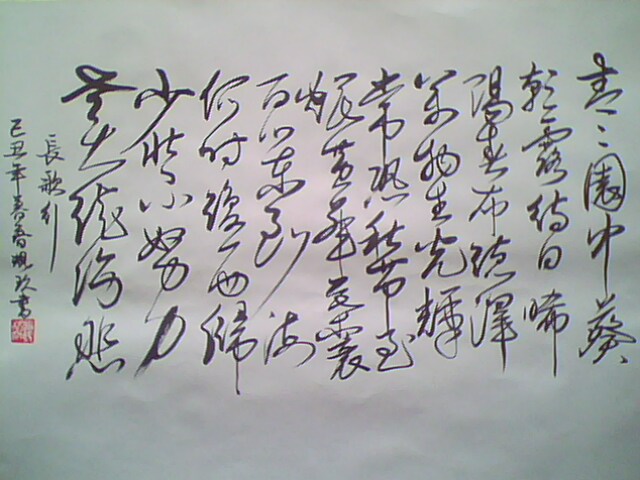 青々園中葵
朝露待日晞
陽春布德澤
萬物生光輝
常恐秋節至
焜黃華葉衰
百川東到海
何時復西歸
少壯不努力
老大徒傷悲
長歌行
己丑年春書